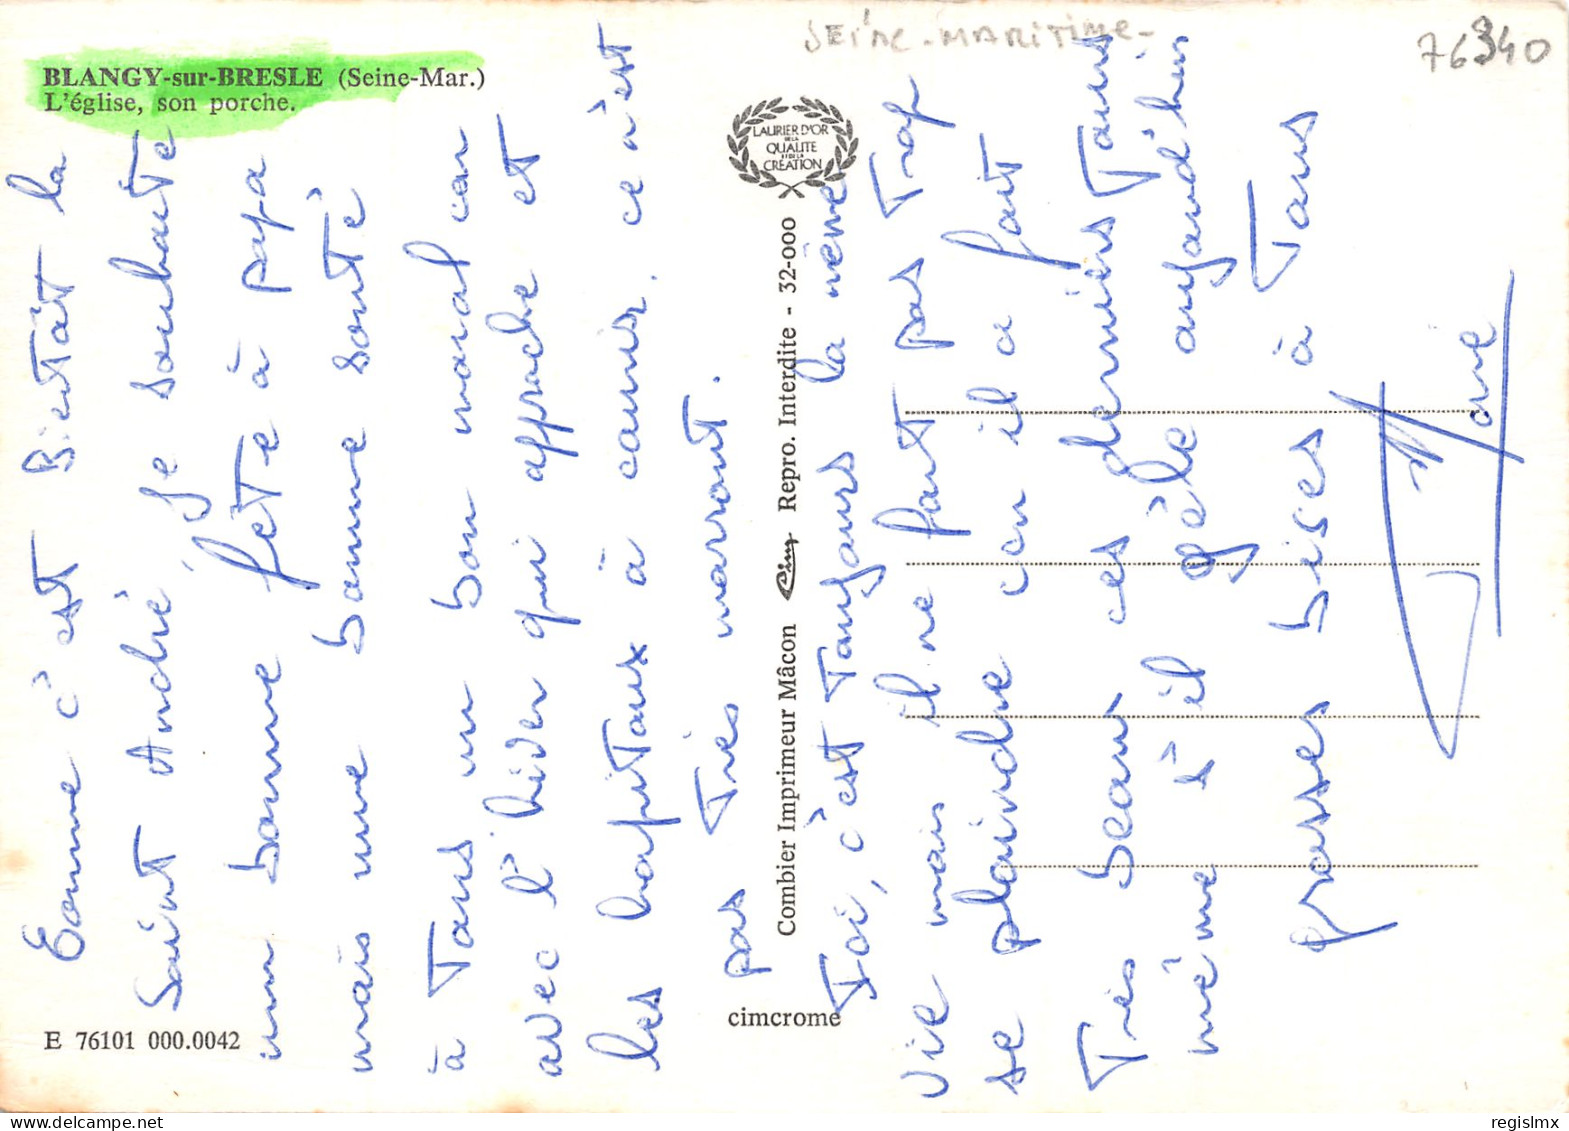 SEINE-MARITIME-
76340
BLANGY-sur-BRESLE (Seine-Mar.)
L'église, son porche.
LAURIER D'OR
DE LA
QUALITE
ET DE LA
CREATION
Comme c'est Bientôt la
Saint André, Je souhaite
une bonne fête à papa
mais une bonne santé
à Tous un bon moral car
avec l'hiver qui approche et
les hopitaux à courir. ce n'est
pas Très marrant.
Combier Imprimeur Mâcon Cim Repro. Interdite - 32-000
Ici, c'est Toujours la même
vie mais il ne faut pas Trop
se plaindre car il a fait
Très beau ces derniers Jours
même s'il gèle aujourd'hui
grosses bises à Tous
Marie
cimcrome
E 76101 000.0042
regislmx